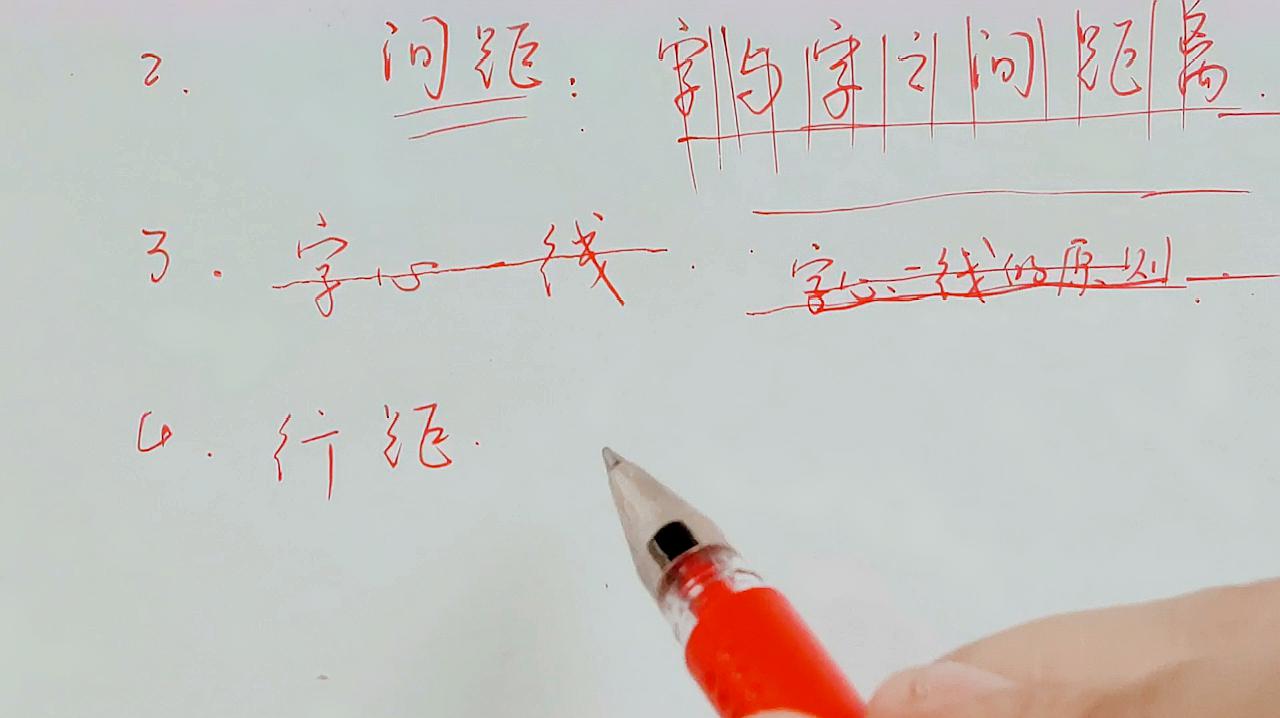 2. 间距: 字与字之间距离.
3. 字心一线. 字心一线的原则.
4. 行距.